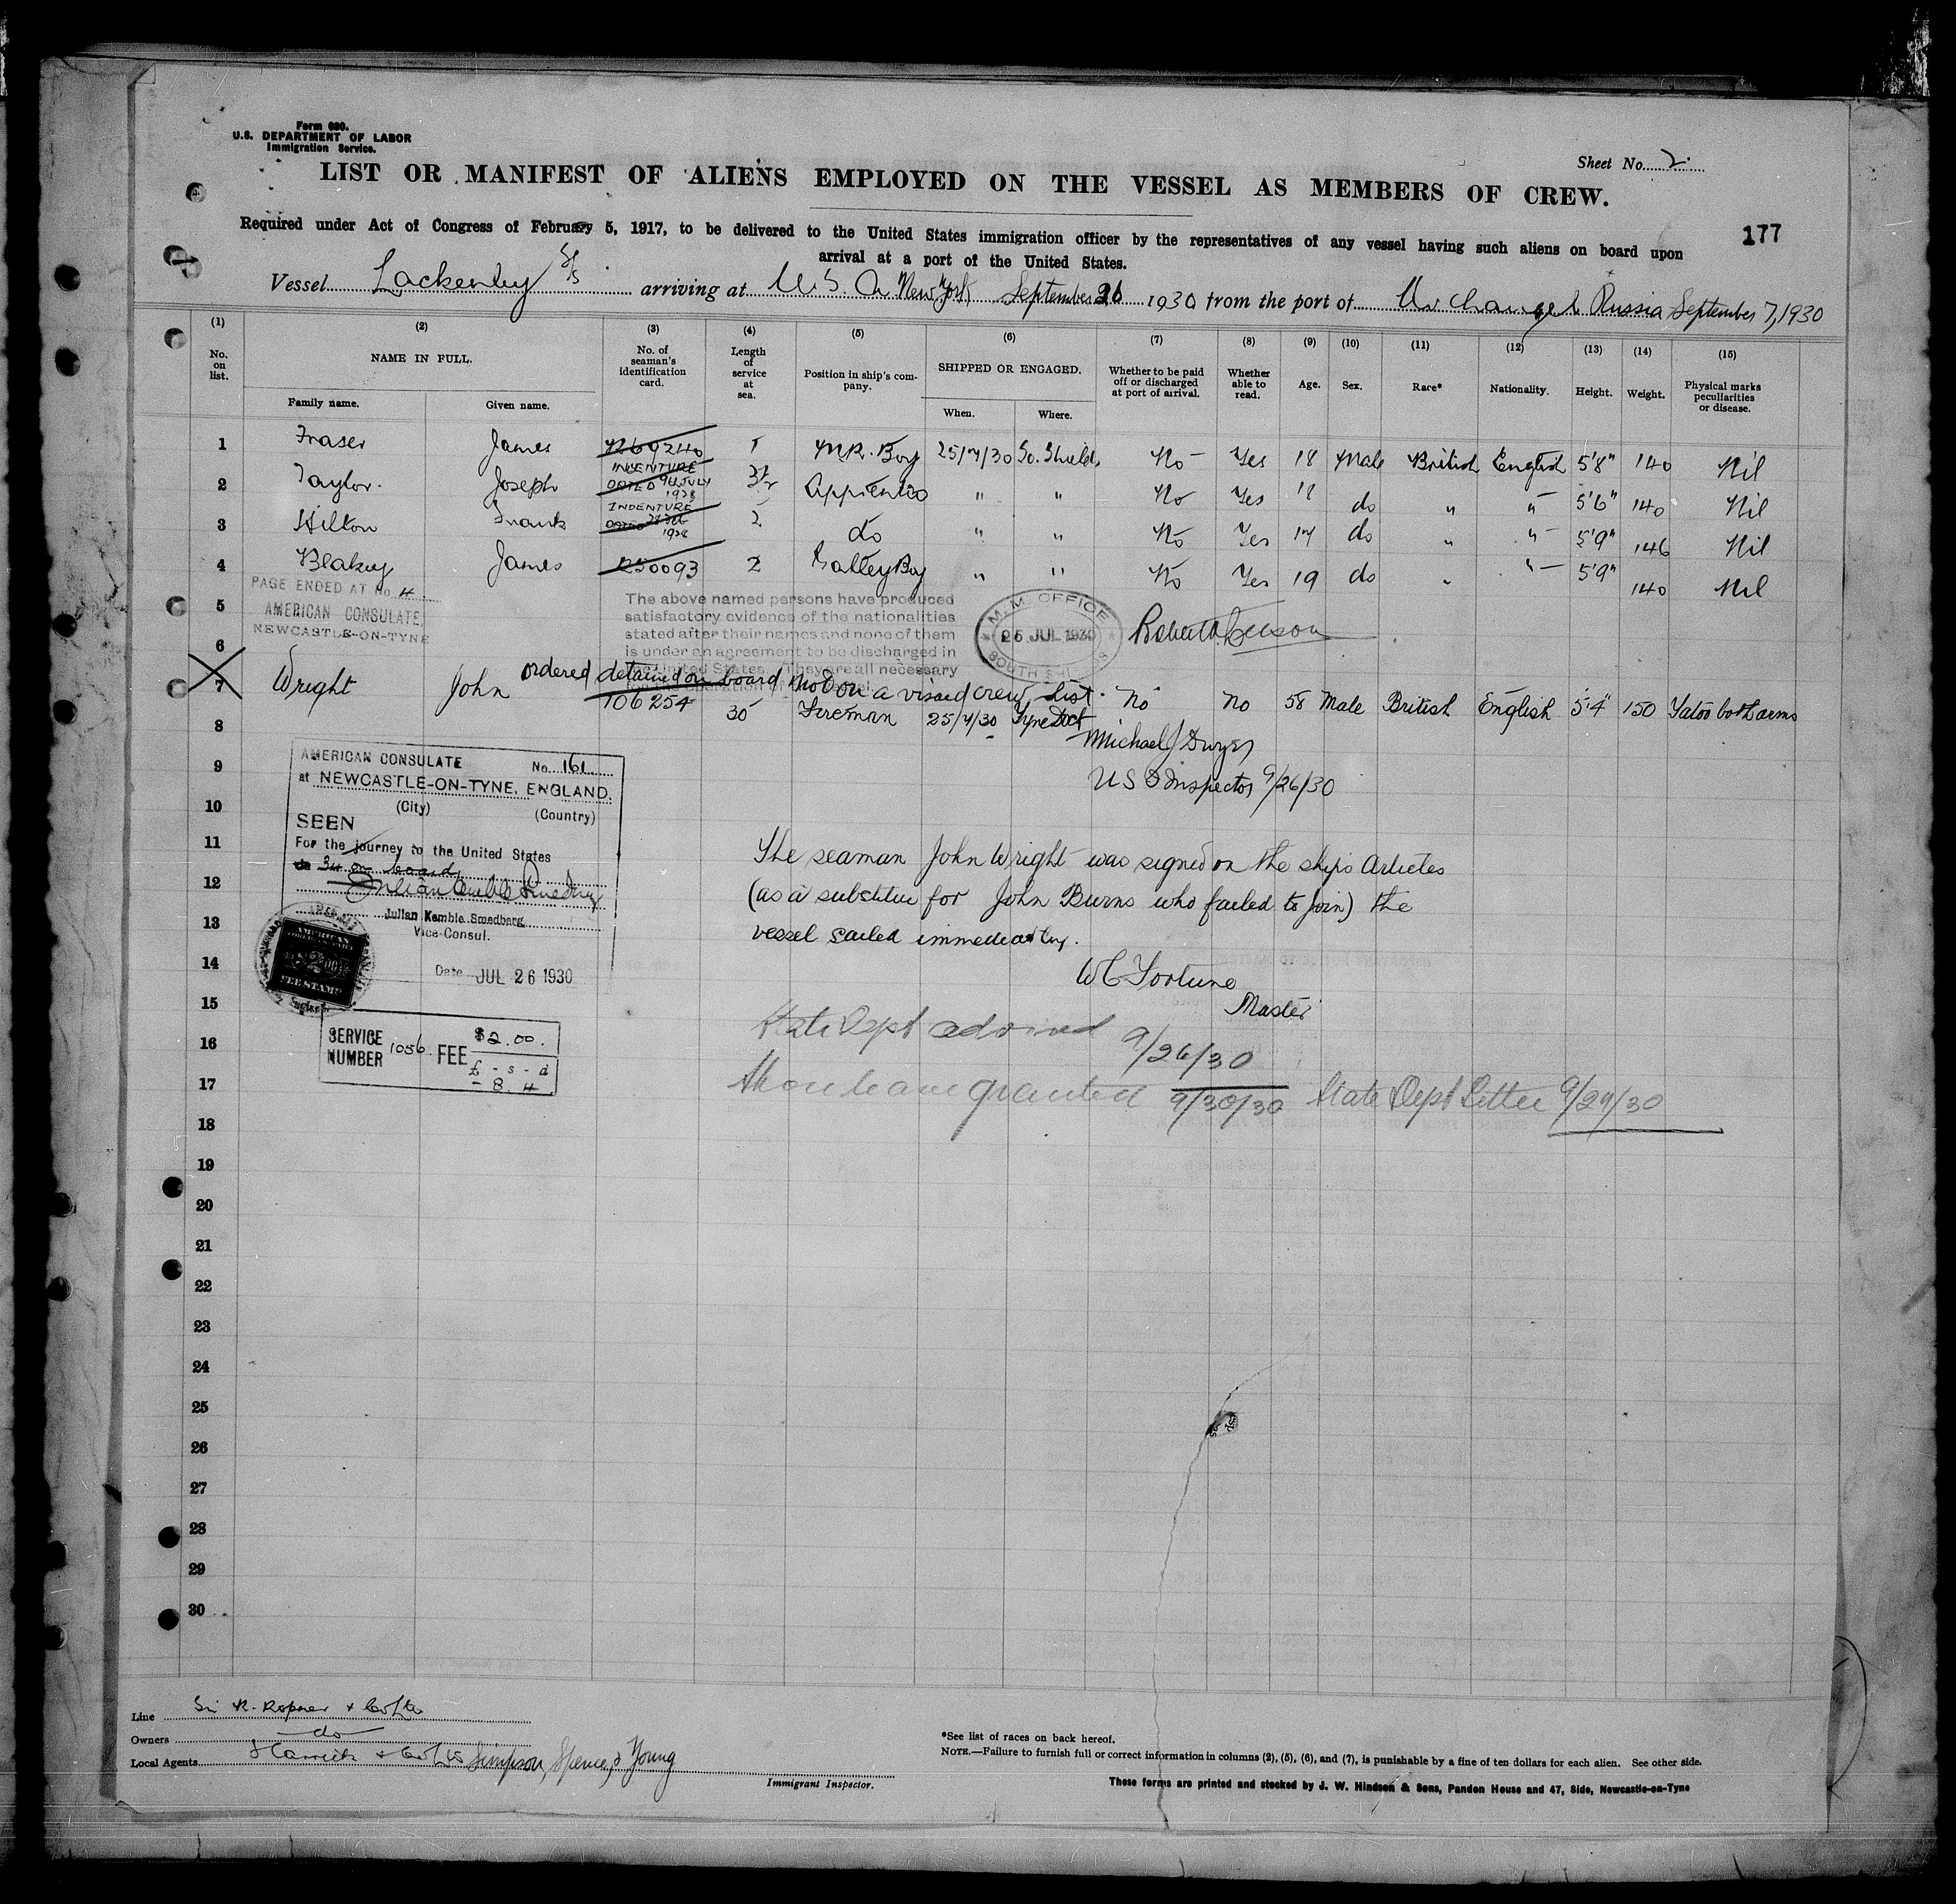 Form 680.
U.S. DEPARTMENT OF LABOR
Immigration Service.
Sheet No. 2.
LIST OR MANIFEST OF ALIENS EMPLOYED ON THE VESSEL AS MEMBERS OF CREW.
177
Required under Act of Congress of February 5, 1917, to be delivered to the United States immigration officer by the representatives of any vessel having such aliens on board upon
arrival at a port of the United States.
Vessel Lackenby S/S arriving at U.S.A. New York September 26 1930 from the port of Archangel Russia September 7, 1930
(1) (2) (3) (4) (5) (6) (7) (8) (9) (10) (11) (12) (13) (14) (15)
No. on list. NAME IN FULL. Family name. Given name. No. of seaman's identification card. Length of service at sea. Position in ship's company. SHIPPED OR ENGAGED. When. Where. Whether to be paid off or discharged at port of arrival. Whether able to read. Age. Sex. Race* Nationality. Height. Weight. Physical marks peculiarities or disease.
1 Fraser James 1 MR. Boy 25/7/30 So. Shields No Yes 18 Male British English 5'8" 140 Nil
2 Taylor. Joseph INDENTURE DATED 9th JULY 1928 Apprentice " " No Yes 18 do " " 5'6" 140 Nil
3 Hilton Frank INDENTURE DATED 1928 2 do " " No Yes 17 do " " 5'9" 146 Nil
4 Blakey James 250093 2 Galley Boy " " No Yes 19 do " " 5'9" 140 Nil
PAGE ENDED AT No. 4
AMERICAN CONSULATE,
NEWCASTLE-ON-TYNE
The above named persons have produced
satisfactory evidence of the nationalities
stated after their names and none of them
is under an agreement to be discharged in
the United States. They are all necessary
M.M. OFFICE
25 JUL 1930
SOUTH SHIELDS
5
6
ordered detained on board Not on a visaed crew list.
7 Wright John 106254 30 Fireman 25/7/30 Tyne Dock No No 58 Male British English 5'4" 150 Tatoo both arms
8
Michael J Dwyer
9
US Inspector 9/26/30
10
AMERICAN CONSULATE No. 161
at NEWCASTLE-ON-TYNE, ENGLAND.
(City) (Country)
SEEN
For the journey to the United States
34 on board
Julian Kemble Smedberg
Julian Kemble Smedberg
Vice-Consul.
Date JUL 26 1930
AMERICAN
FEE STAMP
SERVICE NUMBER 1056 FEE $2.00.
£ - s - d
- 8. 4
11
The seaman John Wright was signed on the ships Articles
12
(as a substitue for John Burns who failed to join) the
13
vessel sailed immediatly.
14
W C Fortune
15
Master
State Dept advised 9/26/30
16
17
Shore leave granted 9/30/30 State Dept Letter 9/29/30
18
19
20
21
22
23
24
25
26
27
28
29
30
Line Sir R. Ropner & Co Ltd
Owners do
Local Agents Simpson, Spence, & Young
Immigrant Inspector.
*See list of races on back hereof.
NOTE.—Failure to furnish full or correct information in columns (2), (5), (6), and (7), is punishable by a fine of ten dollars for each alien. See other side.
These forms are printed and stocked by J. W. Hindson & Sons, Pandon House and 47, Side, Newcastle-on-Tyne